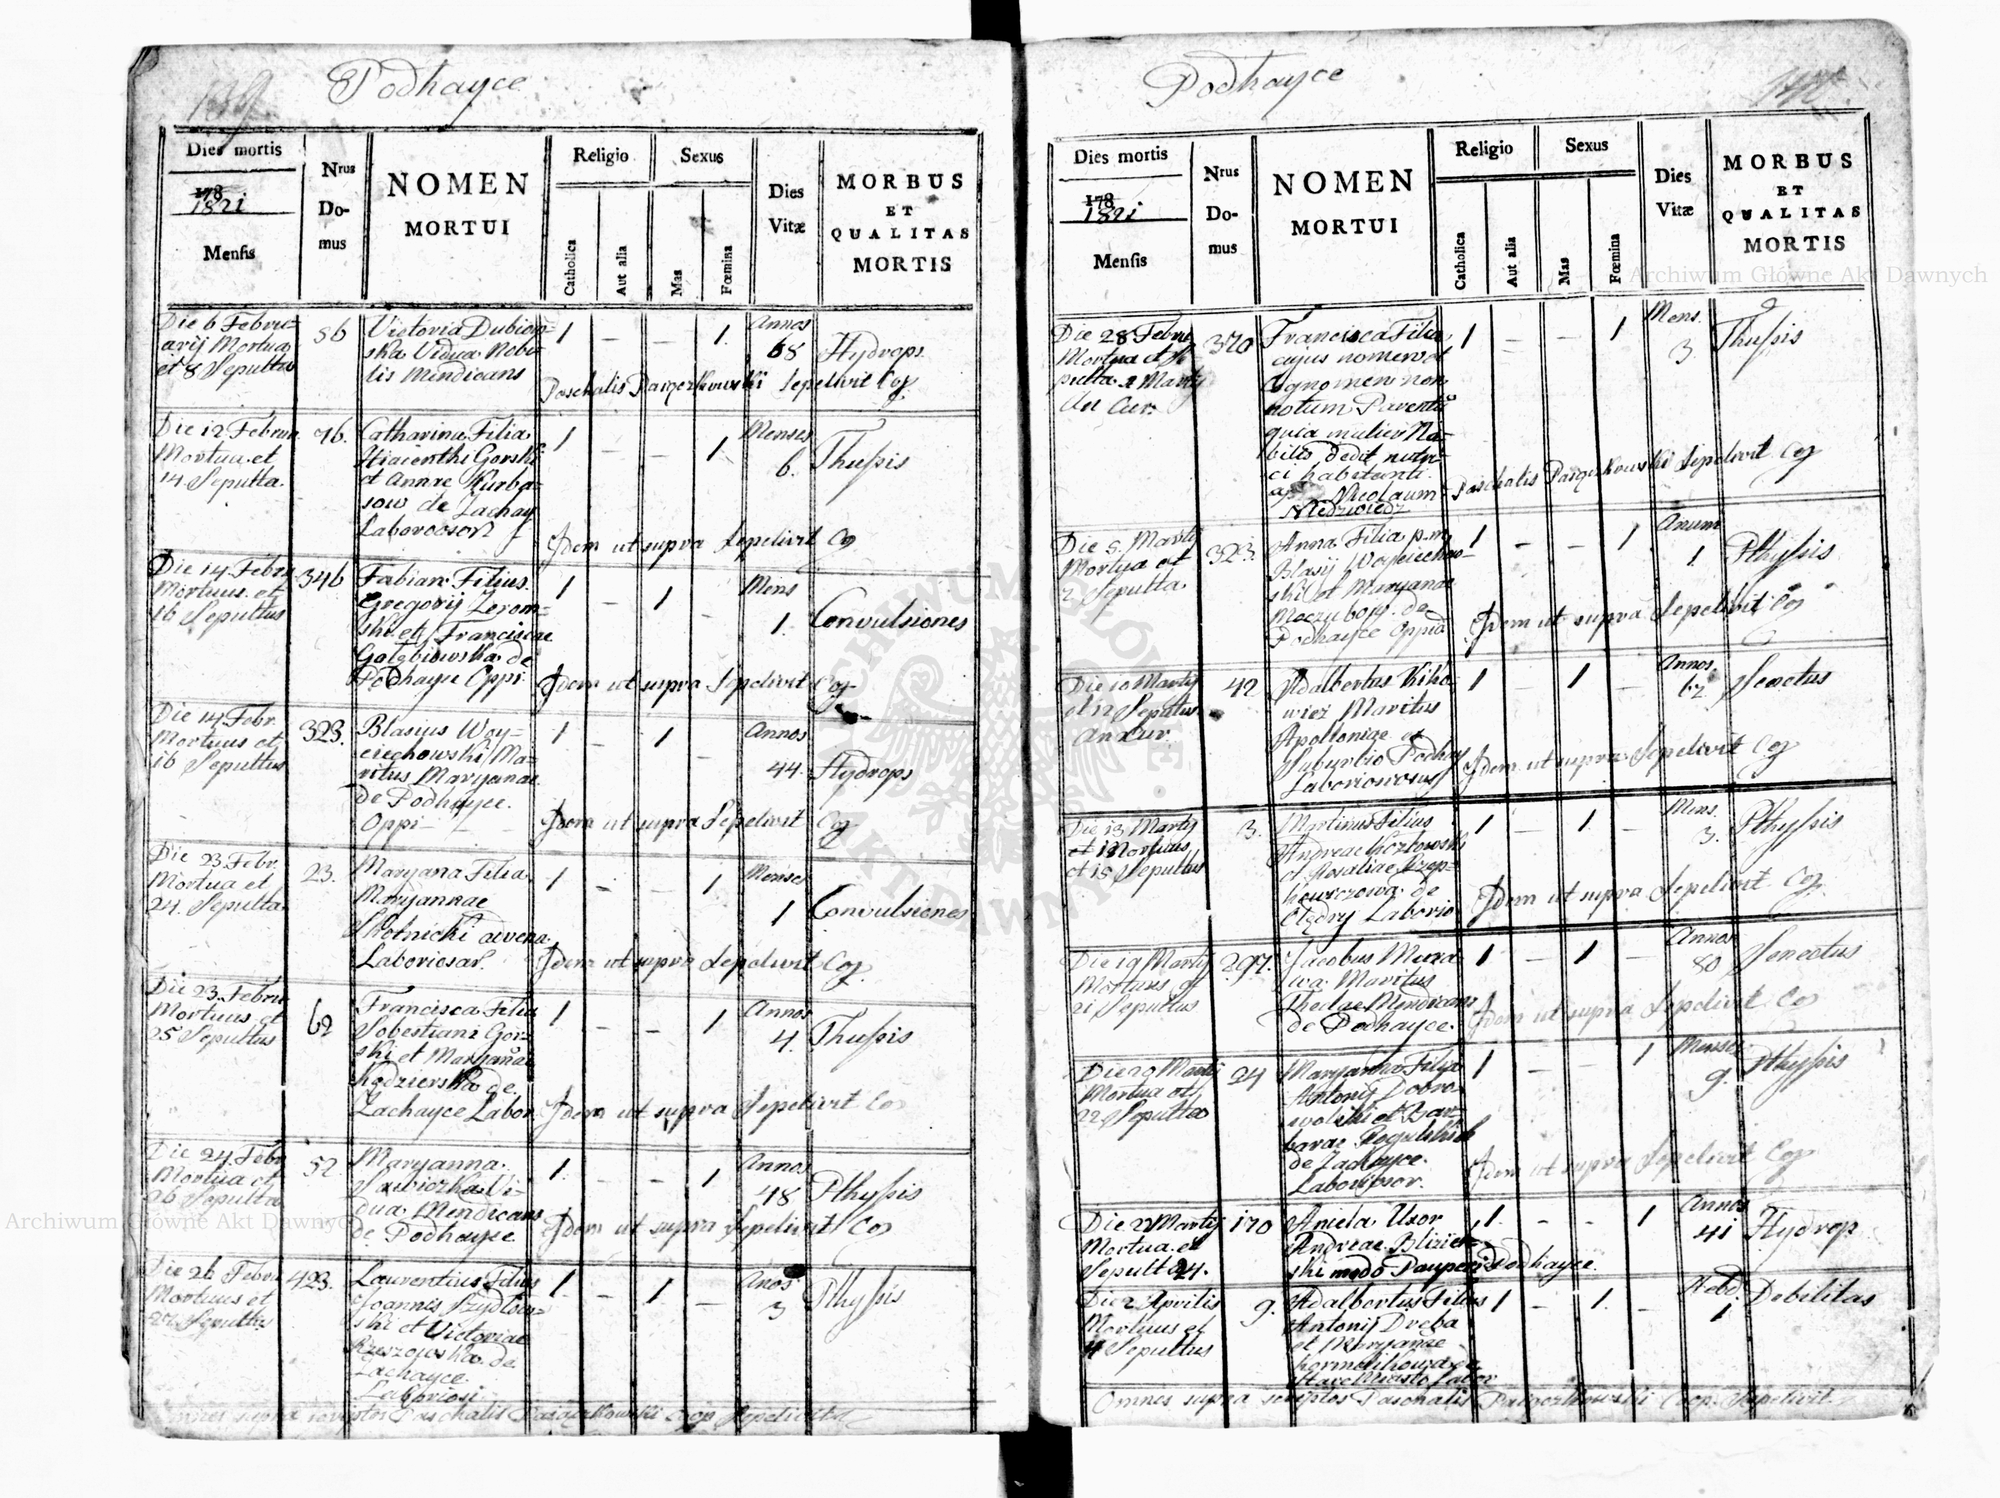 139
Podhayce
Dies mortis
178
1821
Mensis
Nrus
Do-
mus
NOMEN
MORTUI
Religio
Catholica
Aut alia
Sexus
Mas
Fœmina
Dies
Vitæ
MORBUS
ET
QUALITAS
MORTIS
Die 6 Febru-
arij Mortua
et 8 Sepulta
56
Victoria Dubion-
ska Vidua Nobi-
lis Mendicans
1 — — 1.
Annos
68
Hydrops.
Paschalis Pargozkowski Sepelivit Coop.
Die 12 Februa.
Mortua et
14 Sepulta.
76.
Catharina Filia
Hiacenthi Gorski
et Annae Kurba-
sow de Zachay
Laboriosor
1 — — 1
Menses
6.
Thyssis
Idem ut supra Sepelivit Cop
Die 14 Febru
Mortuus et
16 Sepultus
346
Fabian Filius
Gregorij Zerom-
ski et Franciscae
Golębiowska de
Podhayce Oppi
1 — 1 —
Mens
1.
Convulsiones
Idem ut supra Sepelivit Cop
Die 14 Febr.
Mortuus et
16 Sepultus
323.
Blasius Woy-
ciechowski Ma-
ritus Maryanae
de Podhayce.
Oppi
1 — 1 —
Annos
44.
Hydrops
Idem ut supra Sepelivit Cop
Die 23 Febr.
Mortua et
24. Sepulta.
23.
Maryana Filia
Maryannae
Skotnicki advena
Laboriosae.
1 — — 1
Menses
1
Convulsiones
Idem ut supra Sepelivit Cop.
Die 23. Febru
Mortuus et
25 Sepultus
62
Francisca Filia
Sobestiani Gor-
ski et Maryanae
Kędzierska de
Zachayce Labor
1 — — 1
Annos
4.
Thussis
Idem ut supra Sepelivit Co
Die 24 Febr
Mortua et
26 Sepulta
52.
Maryanna
Vi-
dua Mendicans
de Podhayce
1. — — 1
Annos
48
Pthyssis
Idem ut supra Sepelivit Cop
Die 26 Febru
Mortuus et
Sepultus.
423.
Laurentius Filius
Joannis Szydlow-
ski et Victoriae
de
Zachayce
Laboriosi
1. — 1 —
Anos
3
Pthyssis
Omnes supra scriptos Paschalis Pargozkowski Coop Sepelivit
Podhayce
Dies mortis
178
1821
Mensis
Nrus
Do-
mus
NOMEN
MORTUI
Religio
Catholica
Aut alia
Sexus
Mas
Fœmina
Dies
Vitæ
MORBUS
ET
QUALITAS
MORTIS
Die 28 Febru
Mortua et Se
pulta 2 Martij
an Cur.
370
Francisca Filia
cujus nomen et
Cognomen non
notum Parentū
quia mulier No-
bilis dedit nutri-
ci habitanti
ap. Nicolaum
Niedzwiedz
1 — — 1
Mens.
3.
Thussis
Paschalis Pargozkowski Sepelivit Cop
Die 5. Martij
Mortua et
7 Sepulta
323.
Anna Filia p.m.
Blasij Woyciechow-
ski et Maryanae
Moczybog. de
Podhayce Oppid
1 — — 1.
Anum
1.
Pthyssis
Idem ut supra Sepelivit Cop
Die 10 Martij
et 12 Sepultus
An Cur.
42
Adalbertus Kiho-
wicz Maritus
Apolloniae ex
Suburbio Podhay
Laboriosus
1 — 1 —
Annos
62
Senectus
Idem ut supra Sepelivit Cop
Die 13 Martij
et Mortuus
et 15 Sepultus
3.
Martinus Filius
Andreae Kozlowski
et Rosaliae
de
Olędry Laborio
1 — 1. —
Mens.
3.
Pthyssis
Idem ut supra Sepelivit Cop.
Die 19 Martij
Mortuus et
21 Sepultus
297.
Jacobus Mura
wa Maritus
Theclae Mendicans
de Podhayce.
1 — 1 —
Annos
80
Senectus
Idem ut supra Sepelivit Co
Die 20 Marti
Mortua et
22 Sepulta
24
Maryanna Filia
Antonij Dobro-
wolski et Bar-
barae Rogulskich
de Zachayce.
Laboriosor.
1 — — 1
Menses
9.
Pthyssis
Idem ut supra Sepelivit Cop
Die 22 Martij
Mortua et
Sepulta 24.
170
Aniela Uxor
Andreae Blizien-
ski modo Pauperis Podhayce.
1. — — 1
Annos
41
Hydrop
Die 2 Aprilis
Mortuus et
4 Sepultus
9.
Adalbertus Filius
Antonij Dreba
et Maryanae
Karmelikowa de
Stare Miasto Labor
1 — 1. —
Hebd.
1
Debilitas
Omnes supra scriptos Paschalis Pargozkowski Coop. Sepelivit
Archiwum Główne Akt Dawnych
Archiwum Główne Akt Dawnych
ARCHIWUM GŁÓWNE AKT DAWNYCH